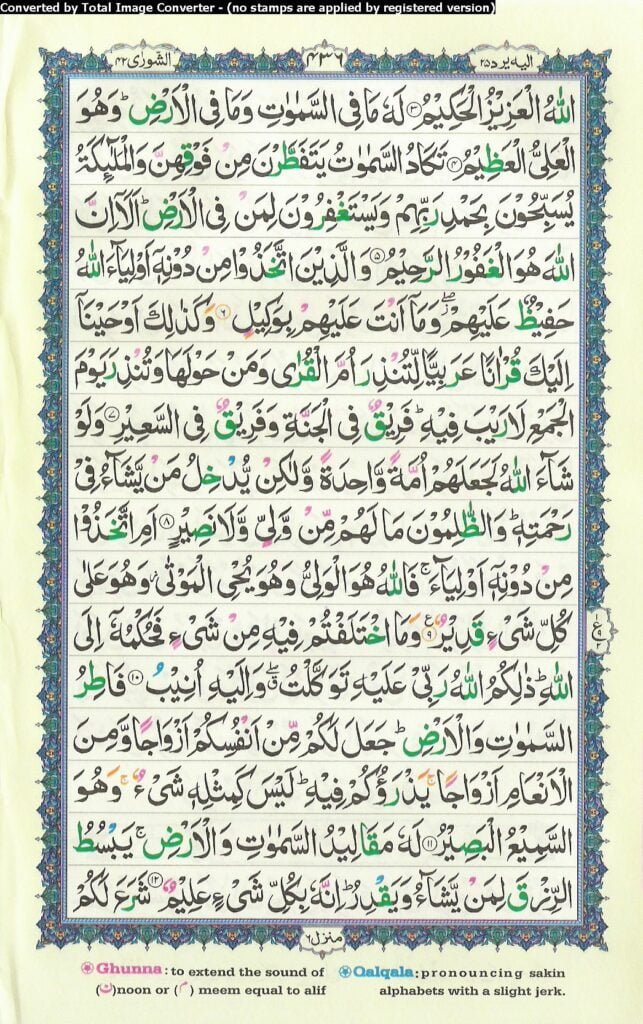 Converted by Total Image Converter - (no stamps are applied by registered version)
اليه يرد ٢٥
٤٣٦
الشورٰى ٤٢
اللّٰهُ الْعَزِيْزُ الْحَكِيْمُ ۝٣ لَهٗ مَا فِى السَّمٰوٰتِ وَمَا فِى الْاَرْضِ ؕ وَهُوَ
الْعَلِىُّ الْعَظِيْمُ ۝٤ تَكَادُ السَّمٰوٰتُ يَتَفَطَّرْنَ مِنْ فَوْقِهِنَّ وَالْمَلٰٓئِكَةُ
يُسَبِّحُوْنَ بِحَمْدِ رَبِّهِمْ وَيَسْتَغْفِرُوْنَ لِمَنْ فِى الْاَرْضِ ؕ اَلَاۤ اِنَّ
اللّٰهَ هُوَ الْغَفُوْرُ الرَّحِيْمُ ۝٥ وَالَّذِيْنَ اتَّخَذُوْا مِنْ دُوْنِهٖۤ اَوْلِيَآءَ اللّٰهُ
حَفِيْظٌ عَلَيْهِمْ ۖ وَمَاۤ اَنْتَ عَلَيْهِمْ بِوَكِيْلٍ ۝٦ وَكَذٰلِكَ اَوْحَيْنَاۤ
اِلَيْكَ قُرْاٰنًا عَرَبِيًّا لِّتُنْذِرَ اُمَّ الْقُرٰى وَمَنْ حَوْلَهَا وَتُنْذِرَ يَوْمَ
الْجَمْعِ لَا رَيْبَ فِيْهِ ؕ فَرِيْقٌ فِى الْجَنَّةِ وَفَرِيْقٌ فِى السَّعِيْرِ ۝٧ وَلَوْ
شَآءَ اللّٰهُ لَجَعَلَهُمْ اُمَّةً وَّاحِدَةً وَّلٰكِنْ يُّدْخِلُ مَنْ يَّشَآءُ فِىْ
رَحْمَتِهٖ ؕ وَالظّٰلِمُوْنَ مَا لَهُمْ مِّنْ وَّلِىٍّ وَّلَا نَصِيْرٍ ۝٨ اَمِ اتَّخَذُوْا
مِنْ دُوْنِهٖۤ اَوْلِيَآءَ ۚ فَاللّٰهُ هُوَ الْوَلِىُّ وَهُوَ يُحْىِ الْمَوْتٰى ؗ وَهُوَ عَلٰى
كُلِّ شَىْءٍ قَدِيْرٌ ۝٩ وَمَا اخْتَلَفْتُمْ فِيْهِ مِنْ شَىْءٍ فَحُكْمُهٗۤ اِلَى
اللّٰهِ ؕ ذٰلِكُمُ اللّٰهُ رَبِّىْ عَلَيْهِ تَوَكَّلْتُ ۖ وَاِلَيْهِ اُنِيْبُ ۝١٠ فَاطِرُ
السَّمٰوٰتِ وَالْاَرْضِ ؕ جَعَلَ لَكُمْ مِّنْ اَنْفُسِكُمْ اَزْوَاجًا وَّمِنَ
الْاَنْعَامِ اَزْوَاجًا ۚ يَذْرَؤُكُمْ فِيْهِ ؕ لَيْسَ كَمِثْلِهٖ شَىْءٌ ۚ وَهُوَ
السَّمِيْعُ الْبَصِيْرُ ۝١١ لَهٗ مَقَالِيْدُ السَّمٰوٰتِ وَالْاَرْضِ ۚ يَبْسُطُ
الرِّزْقَ لِمَنْ يَّشَآءُ وَيَقْدِرُ ؕ اِنَّهٗ بِكُلِّ شَىْءٍ عَلِيْمٌ ۝١٢ شَرَعَ لَكُمْ
منزل ٦
Ghunna: to extend the sound of
(ن)noon or (م) meem equal to alif
Qalqala: pronouncing sakin
alphabets with a slight jerk.